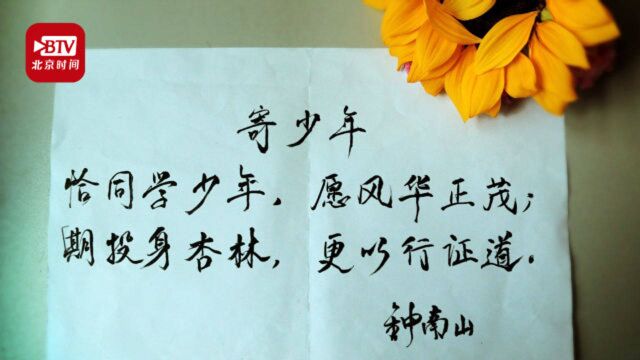 BTV
北京时间
寄少年
恰同学少年,愿风华正茂;
期投身杏林,更以行证道.
钟南山